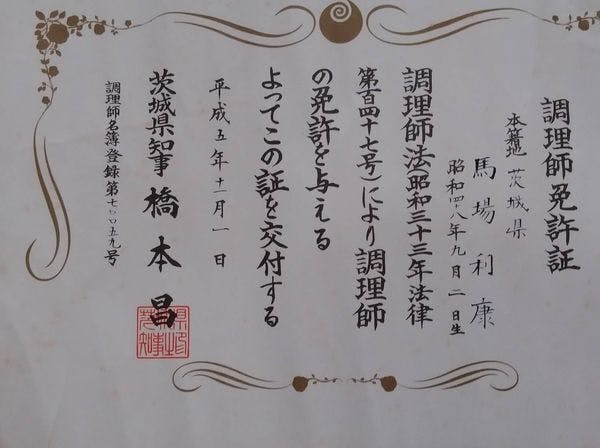 調理師免許証
本籍地 茨城県
馬場利康
昭和四八年九月二日生
調理師法(昭和三十三年法律
第百四十七号)により調理師
の免許を与える
よってこの証を交付する
平成五年十一月一日
茨城県知事 橋本昌
調理師名簿登録第七〇〇五九号
茨城県知事印